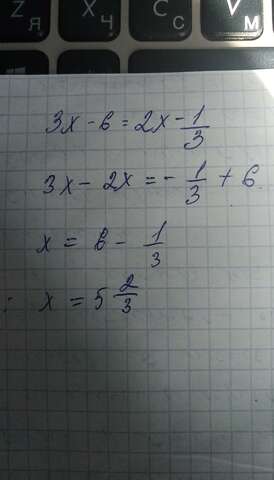 Z Я X Ч C С V М
3x - 6 = 2x - 1/3
3x - 2x = - 1/3 + 6
x = 6 - 1/3
x = 5 2/3